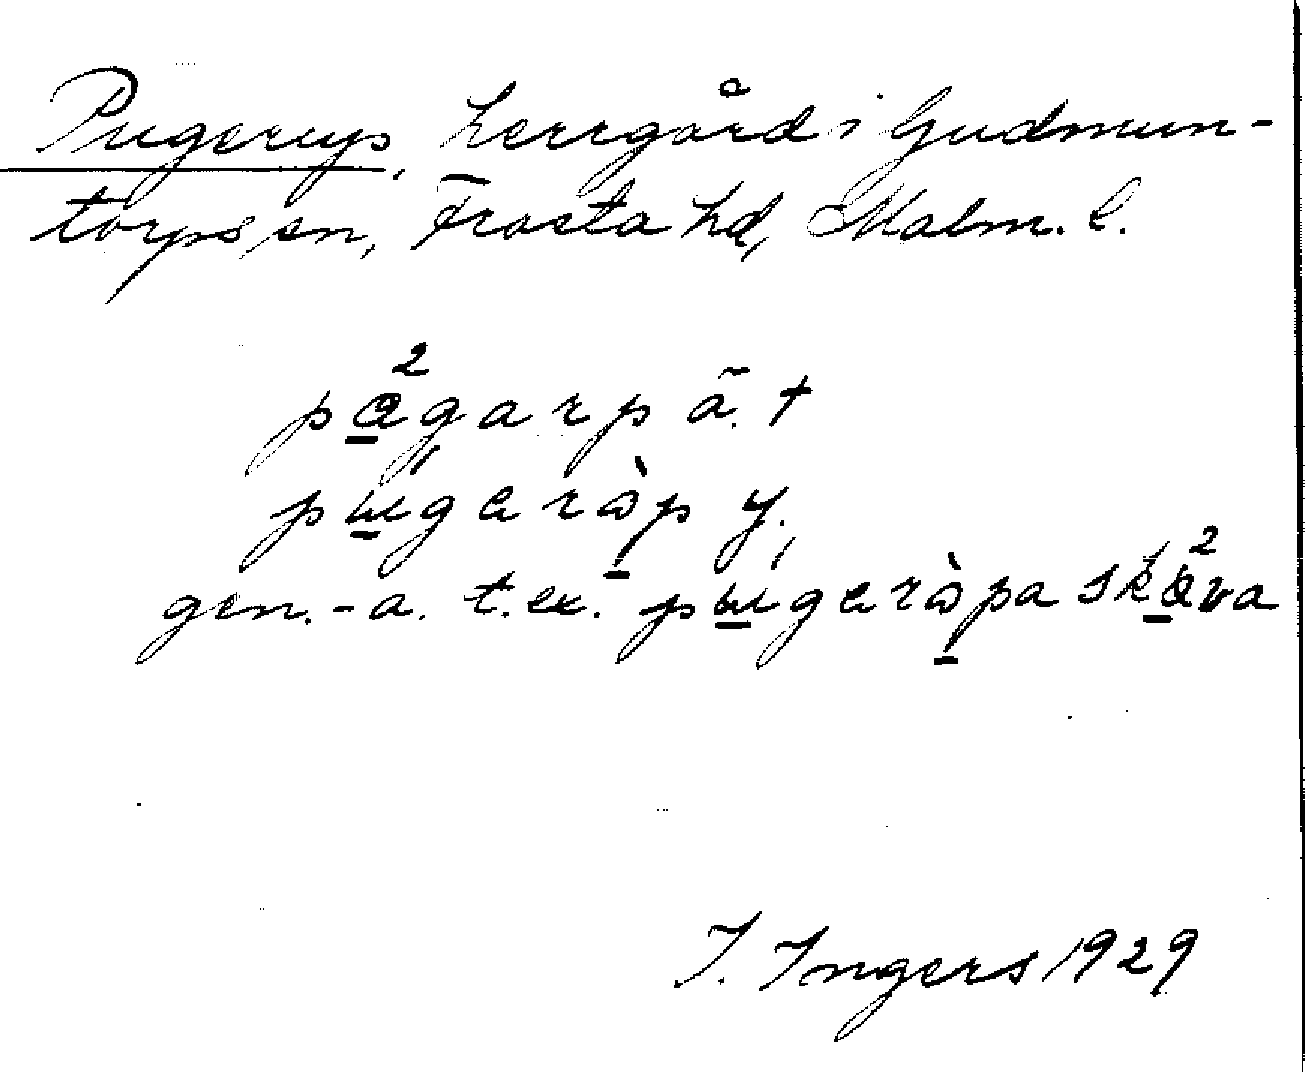 Pugerup, herrgård i Gudmun-
torps sn, Frosta hd, Malm. l.
på̱²garp ã. †
pɯ̱́geròp y.
gen. -a. t.ex. pɯ̱́geròpa skå̱²va
I. Ingers 1929